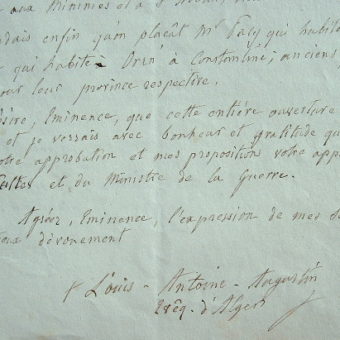 aux Minimes et à
enfin qu'on plaçât Mr qui habite
qui habite Oran à Constantine, anciens
pour leur province respective.
Eminence, que cette entière ouverture
et je verrais avec bonheur et gratitude qu
votre approbation et mes propositions votre app
Cultes et du Ministre de la Guerre.
Agréez, Eminence, l'expression de mes
dévouement
+ Louis - Antoine - Augustin
Evêq. d'Alger